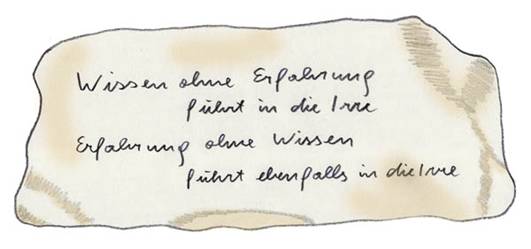 Wissen ohne Erfahrung
führt in die Irre
Erfahrung ohne Wissen
führt ebenfalls in die Irre